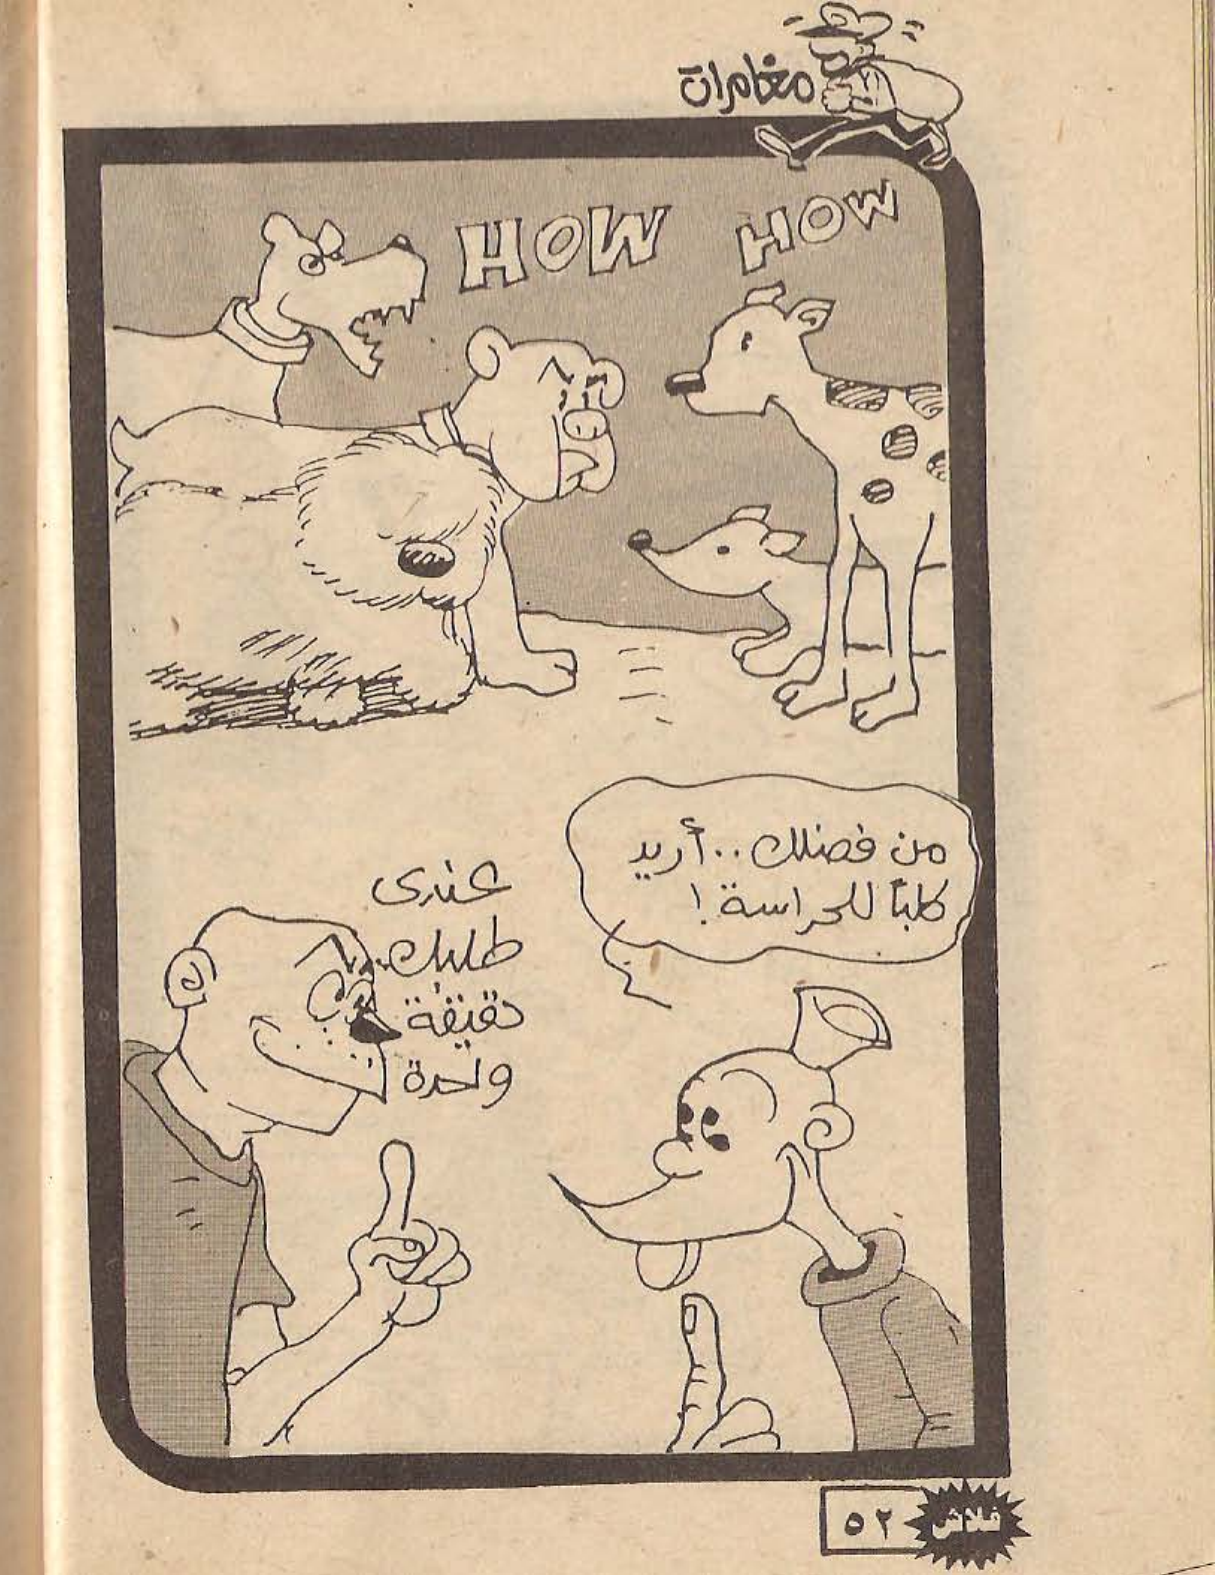 مغامرات
HOW HOW
من فضلك..أريد
كلباً للحراسة!
عندى
طلبك..
دقيقة
واحدة
٥٢
فلاش